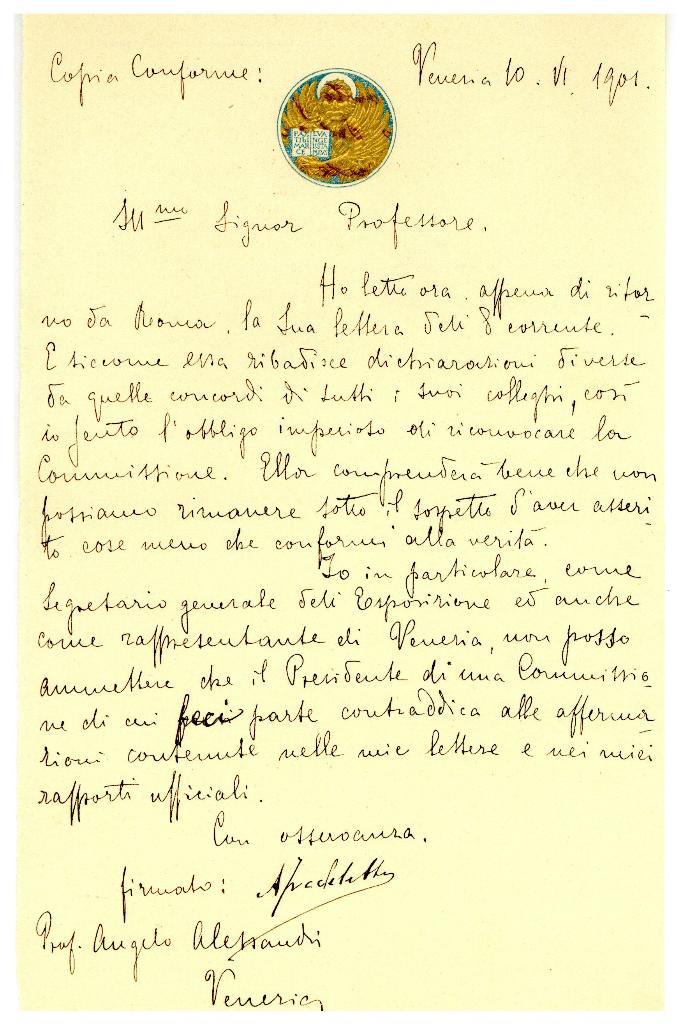 Copia Conforme: Venezia 10. VI 1901.
PAX TIBI MAR CE EVAN GE LISTA MEVS
Ill.mo Signor Professore.
Ho letto ora, appena di ritor-
no da Roma, la Sua lettera dell' 8 corrente.
E siccome essa ribadisce dichiarazioni diverse
da quelle concordi di tutti i suoi colleghi, così
io sento l'obbligo imperioso di riconvocare la
Commissione. Ella comprenderà bene che non
possiamo rimanere sotto il sospetto d'aver asseri-
to cose meno che conformi alla verità.
Io in particolare, come
Segretario generale dell' Esposizione ed anche
come rappresentante di Venezia, non posso
ammettere che il Presidente di una Commissio-
ne di cui feci parte contraddica alle afferma-
zioni contenute nelle mie lettere e nei miei
rapporti ufficiali.
Con osservanza.
firmato: AFradeletto
Prof. Angelo Alessandri
Venezia